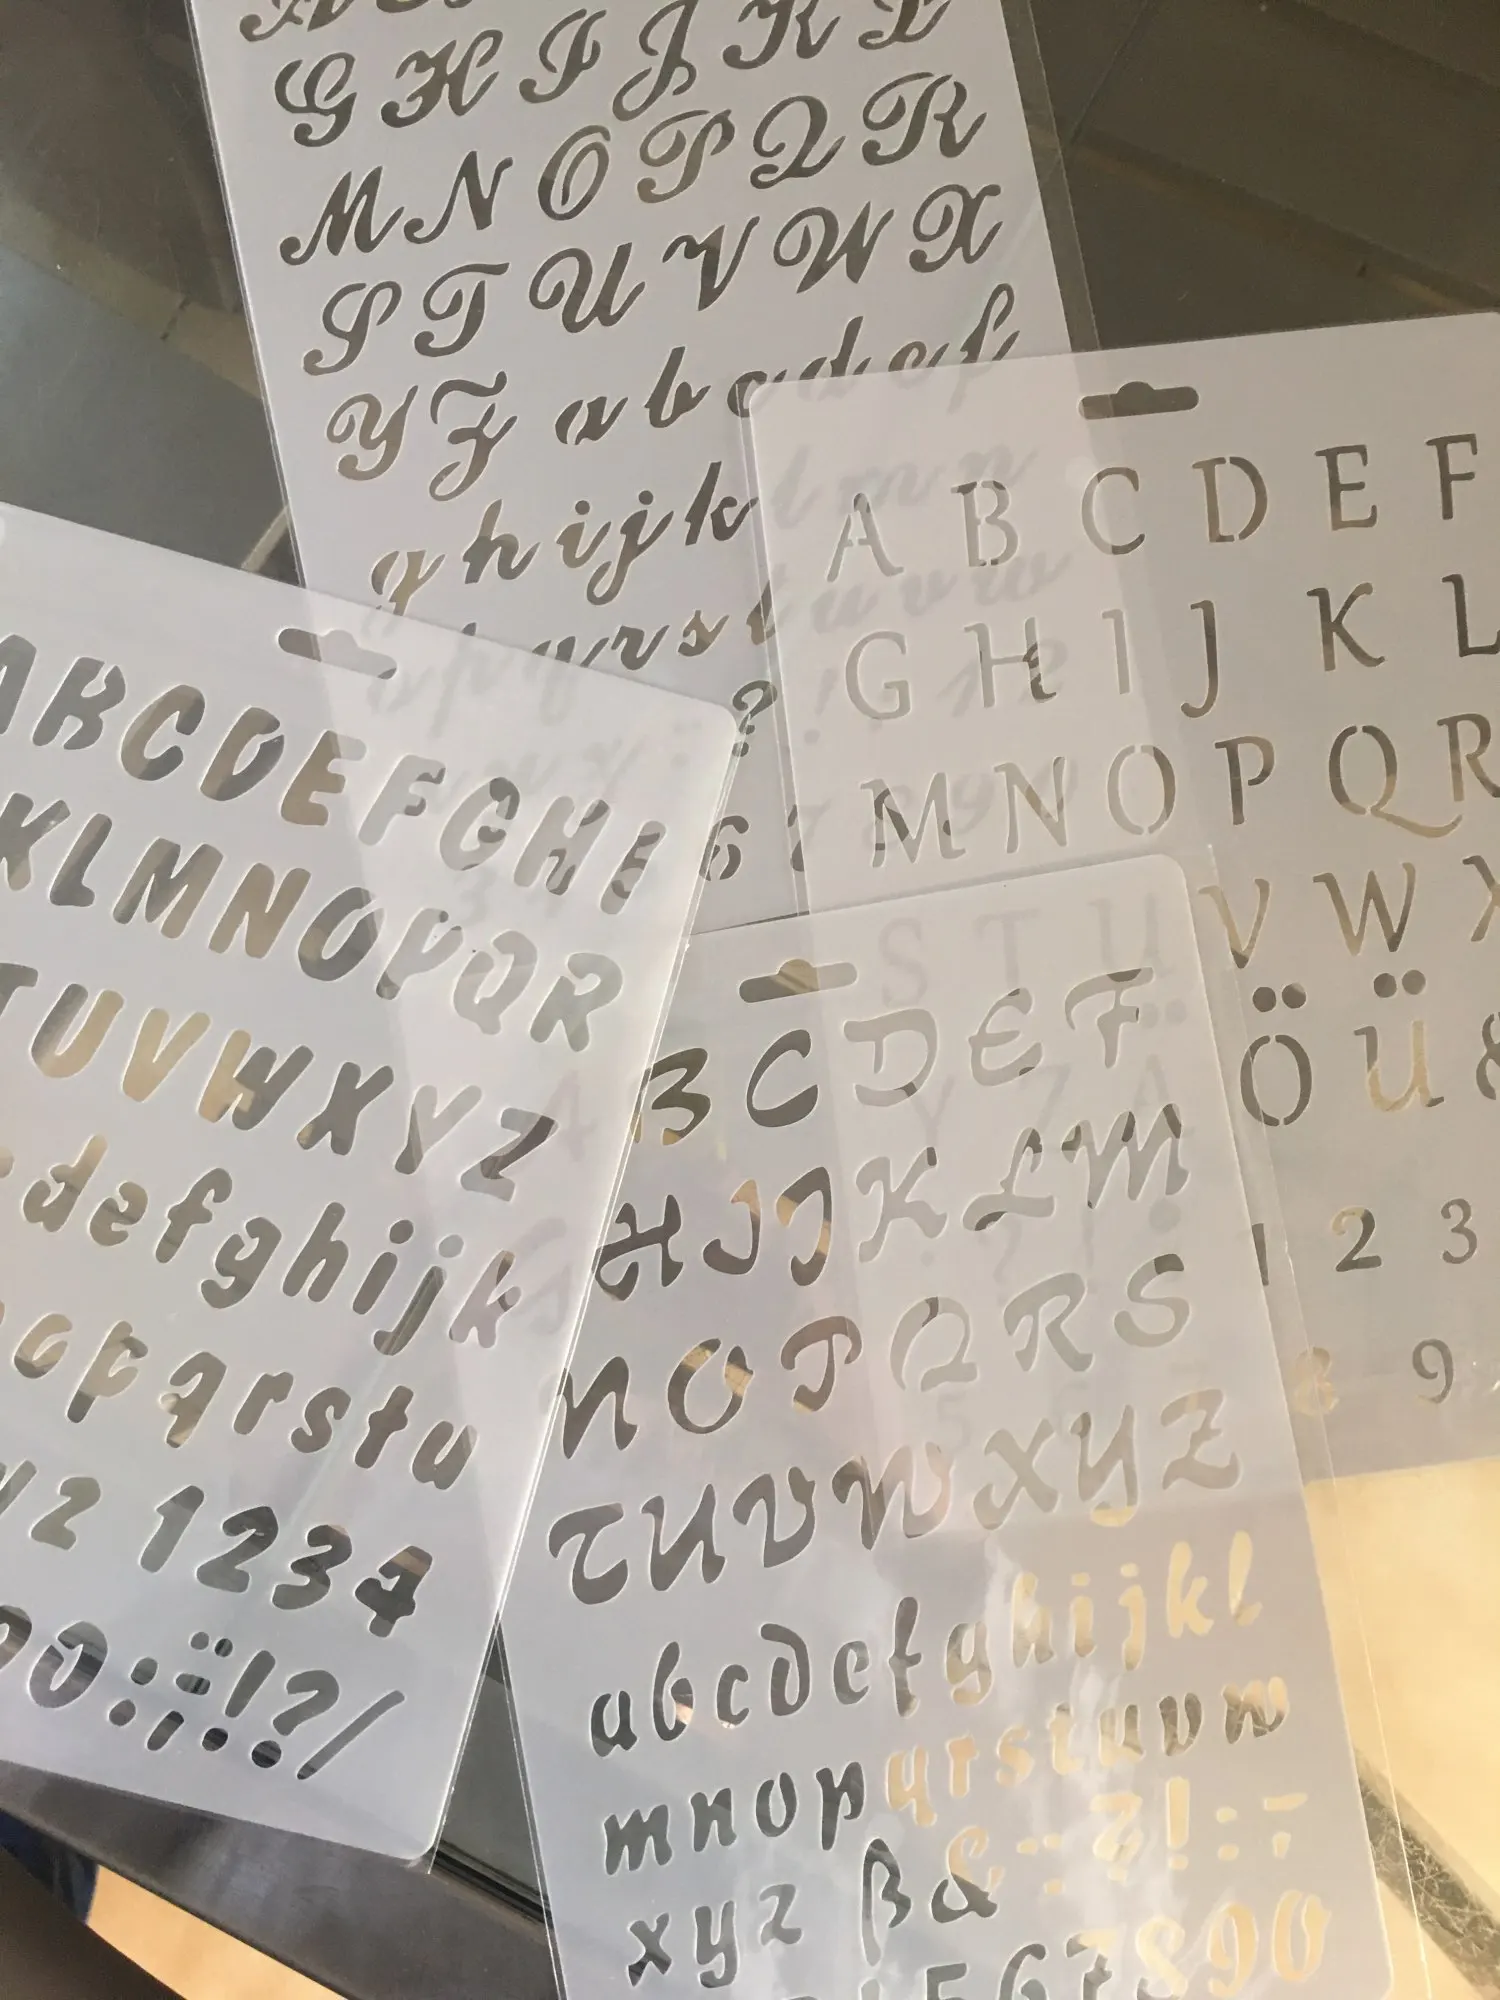 G H I J K L
M N O P Q R
S T U V W X
Y Z a b c d e f
g h i j k l m n
o p q r s t u v w
?
6 7 8 9
A B C D E F
G H I J K L
M N O P Q R
S T U V W X
Y Z Ä Ö Ü &
1 2 3
8 9
A B C D E F G H I
K L M N O P Q R
T U V W X Y Z
d e f g h i j k
o p q r s t u
y z 1 2 3 4
0 : ; ¨ ! ? /
B C D E F
H I J K L M
N O P Q R S
T U V W X Y Z
a b c d e f g h i j k l
m n o p q r s t u v w
x y z ß & ? ! : -
5 6 7 8 9 0